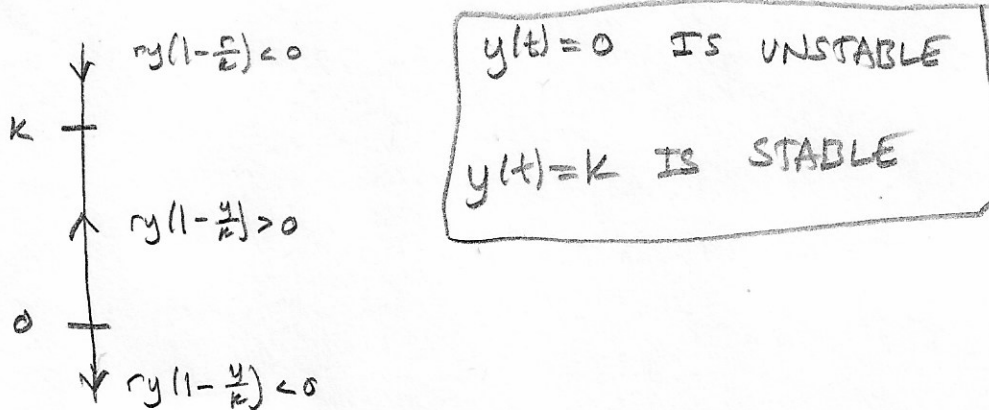 ry(1-r/k)<0
k
ry(1-y/k)>0
0
ry(1-y/k)<0
y(t)=0 IS UNSTABLE
y(t)=k IS STABLE